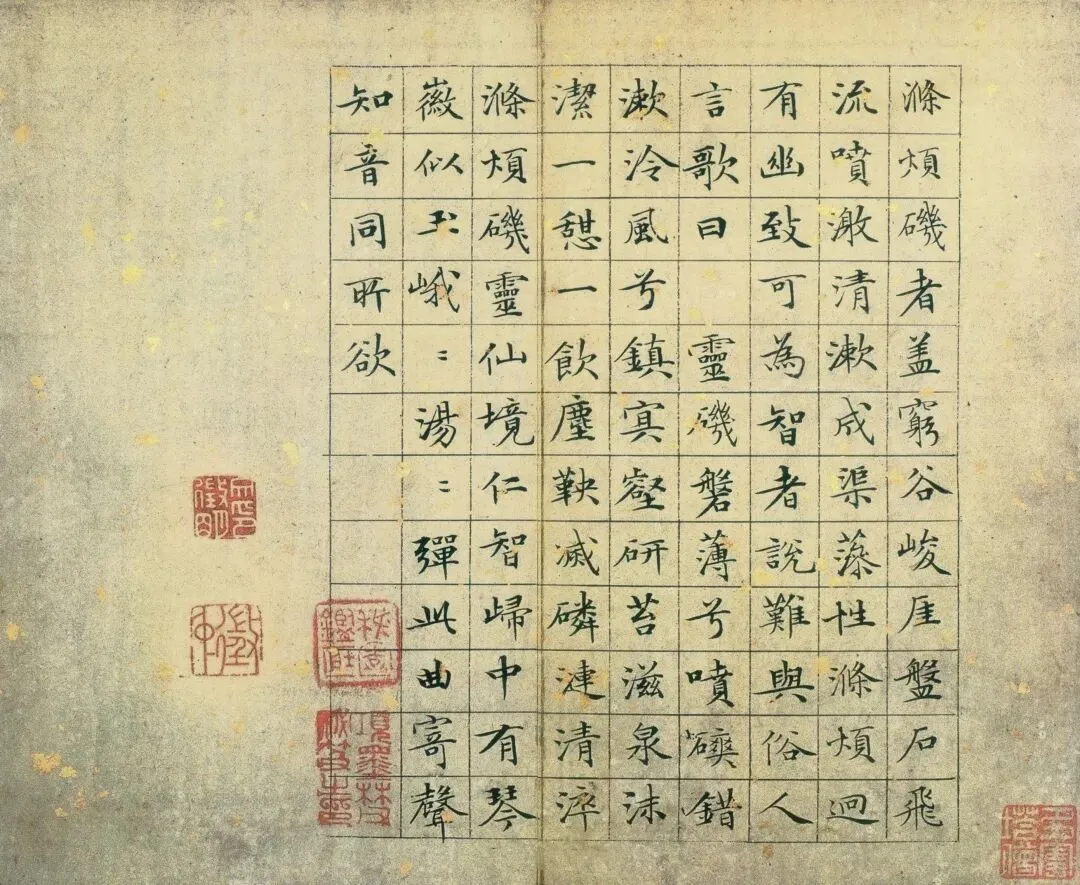 滌煩磯者盖窮谷峻厓盤石飛
流噴激清漱成渠藻性滌煩迥
有幽致可為智者說難與俗人
言歌曰 靈磯磐薄兮噴礇錯
漱泠風兮鎮冥壑研苔滋泉沫
潔一憇一飲塵鞅滅磷漣清淬
滌煩磯靈仙境仁智歸中有琴
薇似玉峨〻湯〻彈此曲寄聲
知音同所欲
項墨林父秘笈之印